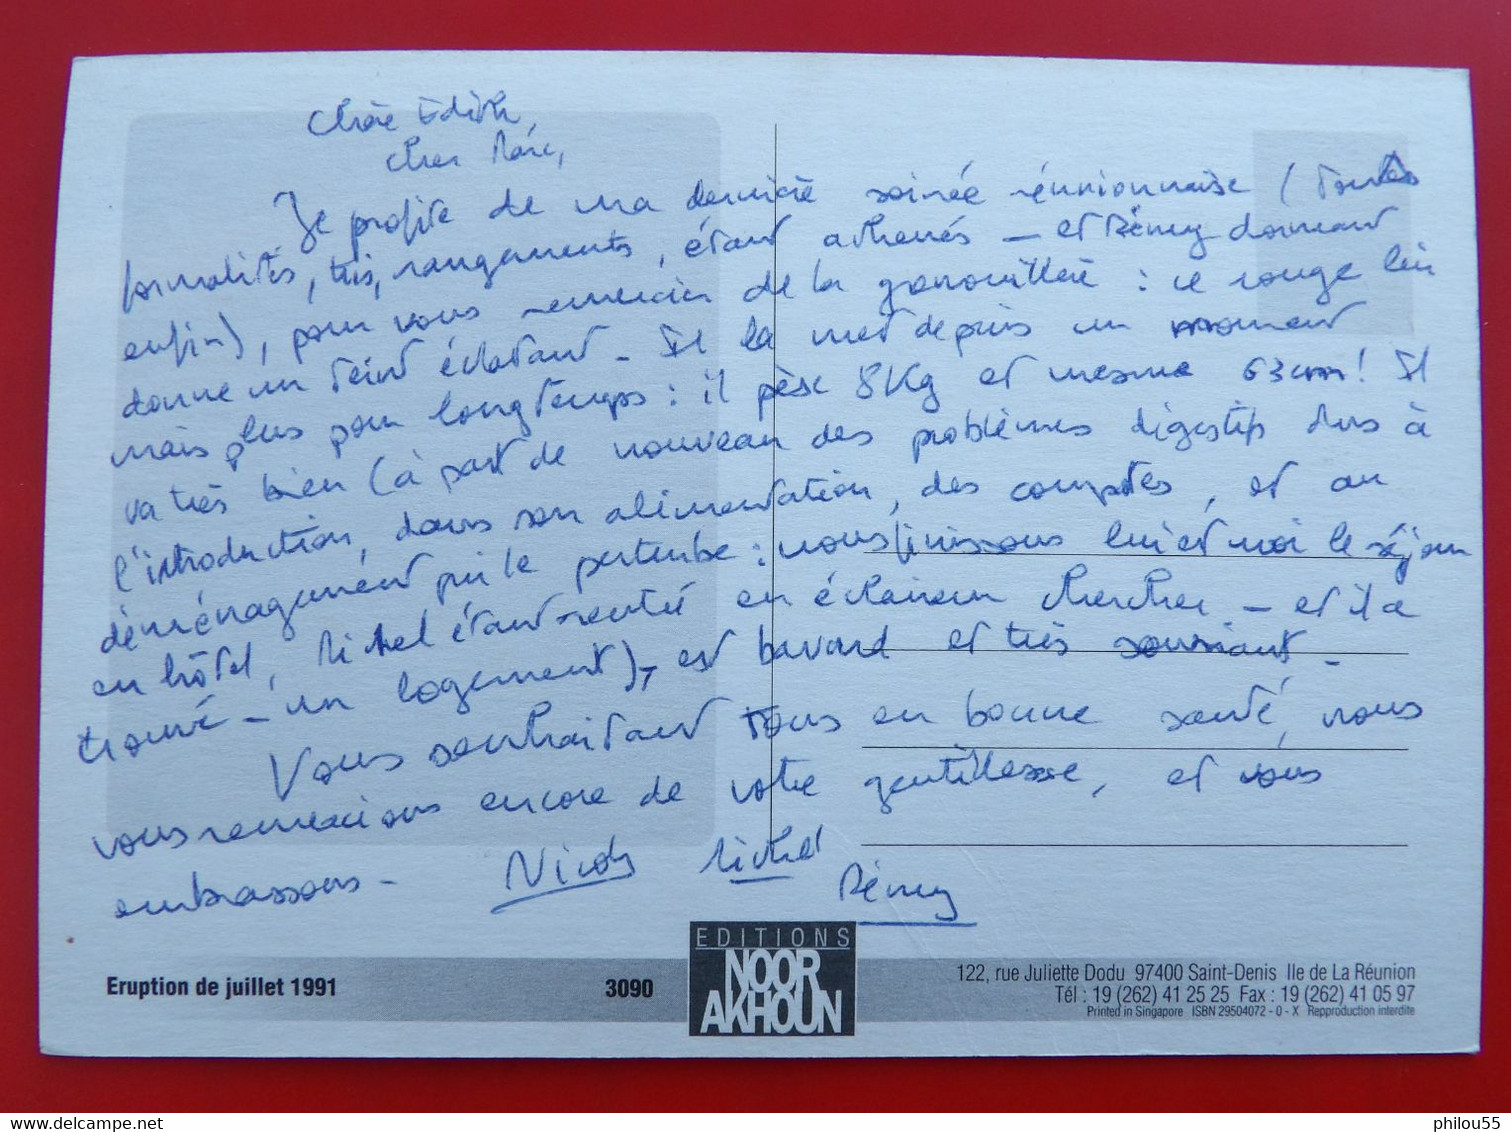 Chère Edith,
Cher Marc,
Je profite de ma dernière soirée réunionnaise (toutes
formalités, tris, rangements, étant achevés - et Rémy dormant
enfin), pour vous remercier de la grenouillère : ce rouge lui
donne un teint éclatant - Il la met depuis un moment
mais plus pour longtemps : il pèse 8Kg et mesure 63cm ! Il
va très bien (à part de nouveau des problèmes digestifs dus à
l'introduction, dans son alimentation, des compotes, et au
déménagement qui le perturbe : nous finissons lui et moi le séjour
en hôtel, Michel étant rentré en éclaireur chercher - et il a
trouvé - un logement), est bavard et très souriant -
Vous souhaitant tous en bonne santé, nous
vous remercions encore de votre gentillesse, et vous
embrassons -
Nicole Michel
Rémy
EDITIONS
NOOR
AKHOUN
Eruption de juillet 1991
3090
122, rue Juliette Dodu 97400 Saint-Denis Ile de La Réunion
Tél : 19 (262) 41 25 25 Fax : 19 (262) 41 05 97
Printed in Singapore ISBN 29504072 - 0 - X Repproduction interdite
philou55